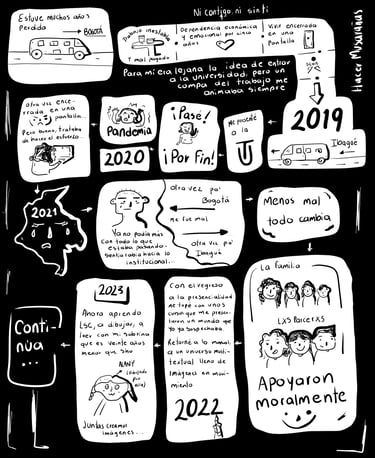 Estuve muchos años
perdida
→ Bogotá
Ni contigo, ni sin ti
Trabajo inestable
y mal pagado
Dependencia económica
y emocional por cinco
años
Vivir encerrada
en una
Pantalla
Para mí era lejana la idea de entrar
a la universidad, pero un
compa del trabajo me
animaba siempre
Hacer Musarañas
2019
Ibagué
Me presenté
a la
¡Pasé!
¡Por Fin!
Pandemia
2020
Otra vez ence-
rrada en una
pantalla...
Pero bueno, trataba
de hacer el esfuerzo...
2021
Ya no podía más
con todo lo que
estaba pasando.
Sentía rabia hacia lo
institucional...
Otra vez pa'
Bogotá
Me fue mal
Otra vez pa'
Ibagué
Menos mal
todo cambia
La familia
Lxs Parcerxs
Apoyaron
moralmente
Con el regreso
a la presencialidad
me topé con unos
cursos que me presen-
taron un mundo que
yo ya sospechaba.
Retorné a lo manual,
a un universo multi-
textual lleno de
imágenes en movi-
miento
2022
2023
Ahora aprendo
LSC, a dibujar, a
leer con mi sobrina
que es veinte años
menor que sho
NANY
(dibujada
por ella)
Juntas creamos
imágenes...
Conti-
núa
...